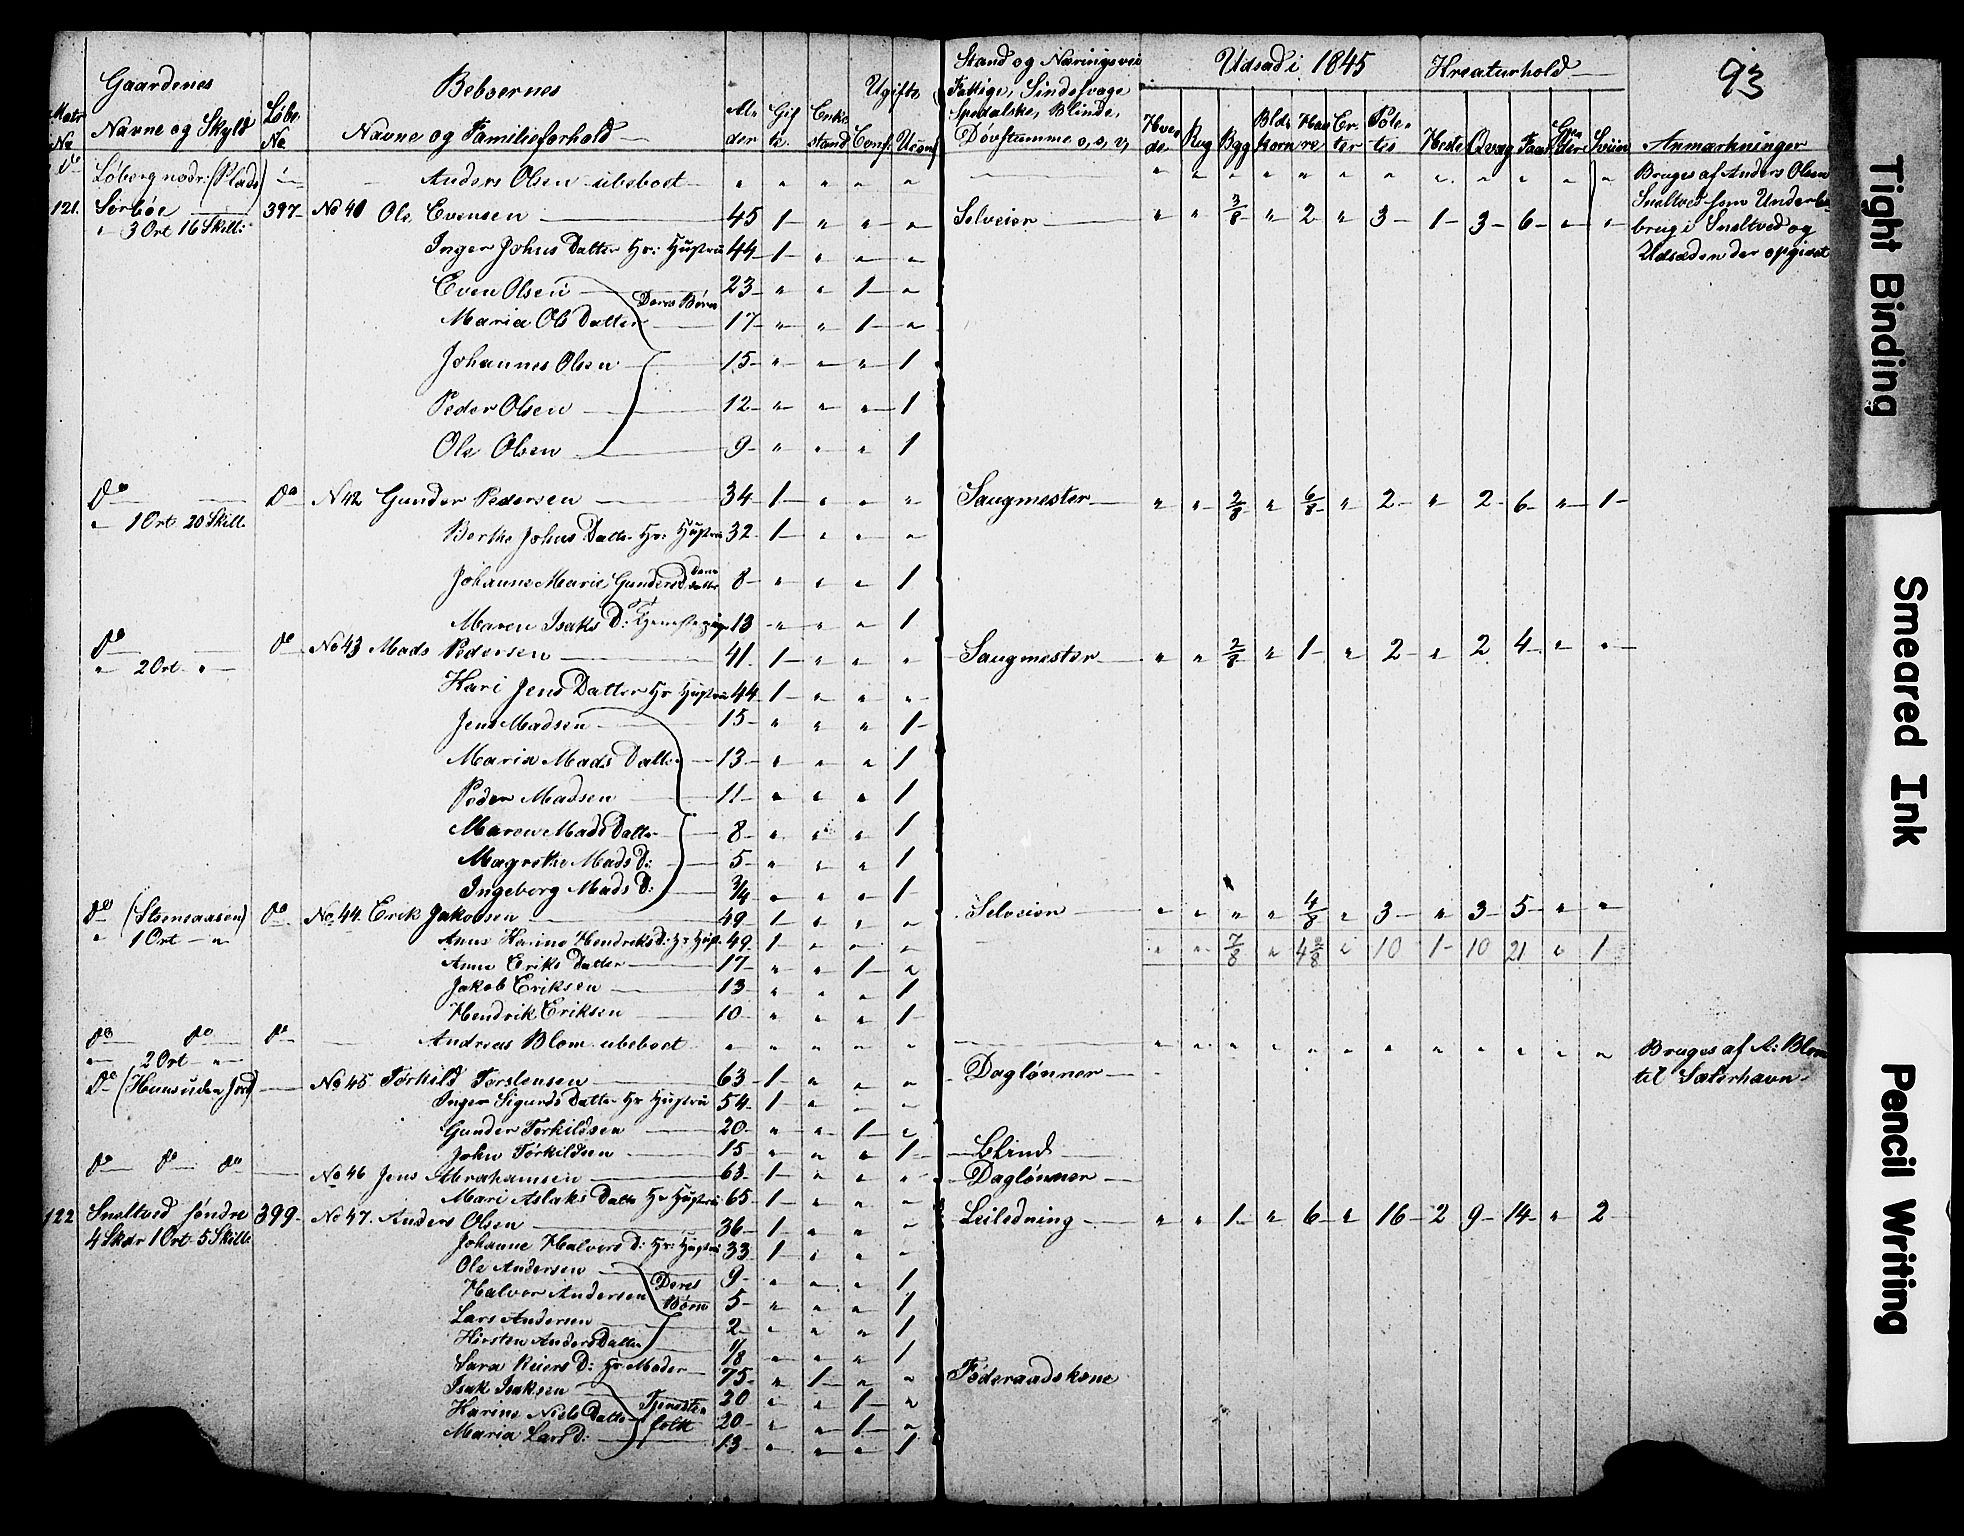 93
Matr No | Gaardenes Navne og Skyld | Løbe No | Beboernes Navne og Familieforhold | Alder | Gifte | Enkestand | Ugifte Conf. | Uconf. | Stand og Næringsvei Fattige, Sindssvage spedalske, Blinde, Døvstumme o, s, v, | Udsæd i 1845 Hvede | Rug | Byg | Bldkorn | Havre | Erter | Potetes | Kreaturhold Heste | Qvæg | Faar | Geeder | Sviin | Anmærkninger
Do Løberg nodr: (Plads) Anders Olsen ubeboet " " " " " " " " " " " " " " " " " Bruges af Anders Olsen
121. Sørbøe 397 No 41 Ole Evensen 45 1 " " " Selveier " " 3/8 " 2 " 3 1 3 6 " " Snaltved som Underbrug i Snaltved og
" 3 Ort 16 Skill: Udsæden der opgivet
Inger Johns Datter Hs: Hustru 44 1 " " "
Even Olsen 23 " " 1 " Deres Børn
Maria Ols Datter 17 " " 1 "
Johannes Olsen 15 " " " 1
Peder Olsen 12 " " " 1
Ole Olsen 9 " " " 1
Do Do No 42 Gunder Pedersen 34 1 " " " Saugmester " " 2/8 " 6/8 " 2 " 2 6 " 1
" 1 Ort 20 Skill.
Berthe Johns Datter Hs: Hustru 32 1 " " "
Johanne Marie Gundersd deres Datter 8 " " " 1
Maren Isaks D: Tjenestepige 13 " " " 1
Do Do No 43 Mads Pedersen 41 1 " " " Saugmester " " 2/8 " 1 " 2 " 2 4 " "
" 2 Ort "
Kari Jens Datter Hs Hustru 44 1 " " "
Jens Madsen 15 " " " 1
Maria Mads Datter 13 " " " 1
Peder Madsen 11 " " " 1
Maren Mads Datter 8 " " " 1
Magrethe Mads D: 5 " " " 1
Ingeborg Mads D: 3/4 " " " 1
Do (Steensaasen) Do No 44. Erik Jakobsen 49 1 " " " Selveier " " " " 4/8 " 3 " 3 5 " "
" 1 Ort "
Anne Karine Hendriks D: Hs Hust. 49. 1 " " " " " 7/8 " 4 2/8 " 10 1 10 21 " 1
Anne Eriks Datter 17 " " 1 "
Jakob Eriksen 13 " " " 1
Hendrik Eriksen 10 " " " 1
Do Do Do Andreas Blom ubeboet " " " " " " " " " " " " " " " " " Bruges af A: Blom
" 2 Ort " til Sæterhavn
Do (Huus uden Jord) No 45 Torkild Torstensen 63 1 " " " Daglønner
Inger Sigurds Datter Hs Hustru 54 1 " " "
Gunder Torkildsen 20 " " 1 "
John Torkildsen 15 " " " 1 Blind
Do Do Do No 46 Jens Abrahamsen 63 1 " " " Daglønner
Mari Aslaks Datter Hs Hustru 65 1 " " "
122 Snaltved søndre 399 No 47. Anders Olsen 36 1 " " " Leilending " " 1 " 6 " 16 2 9 14 " 2
4 Skdr 1 Ort 5 Skill.
Johanne Halvors D: Hs: Hustru 33 1 " " "
Ole Andersen 9 " " " 1 Deres Børn
Halvor Andersen 5 " " " 1
Lars Andersen 2 " " " 1
Kirsten Anders Datter 1/8 " " " 1
Sara Reiers D: Hs Moder 75 " 1 " " Føderaadskone
Isak Isaksen 20 " " 1 " Tjenestefolk
Karine Niels Datter 20 " " 1 "
Maria Lars D: 13 " " " 1
Tight Binding
Smeared Ink
Pencil Writing